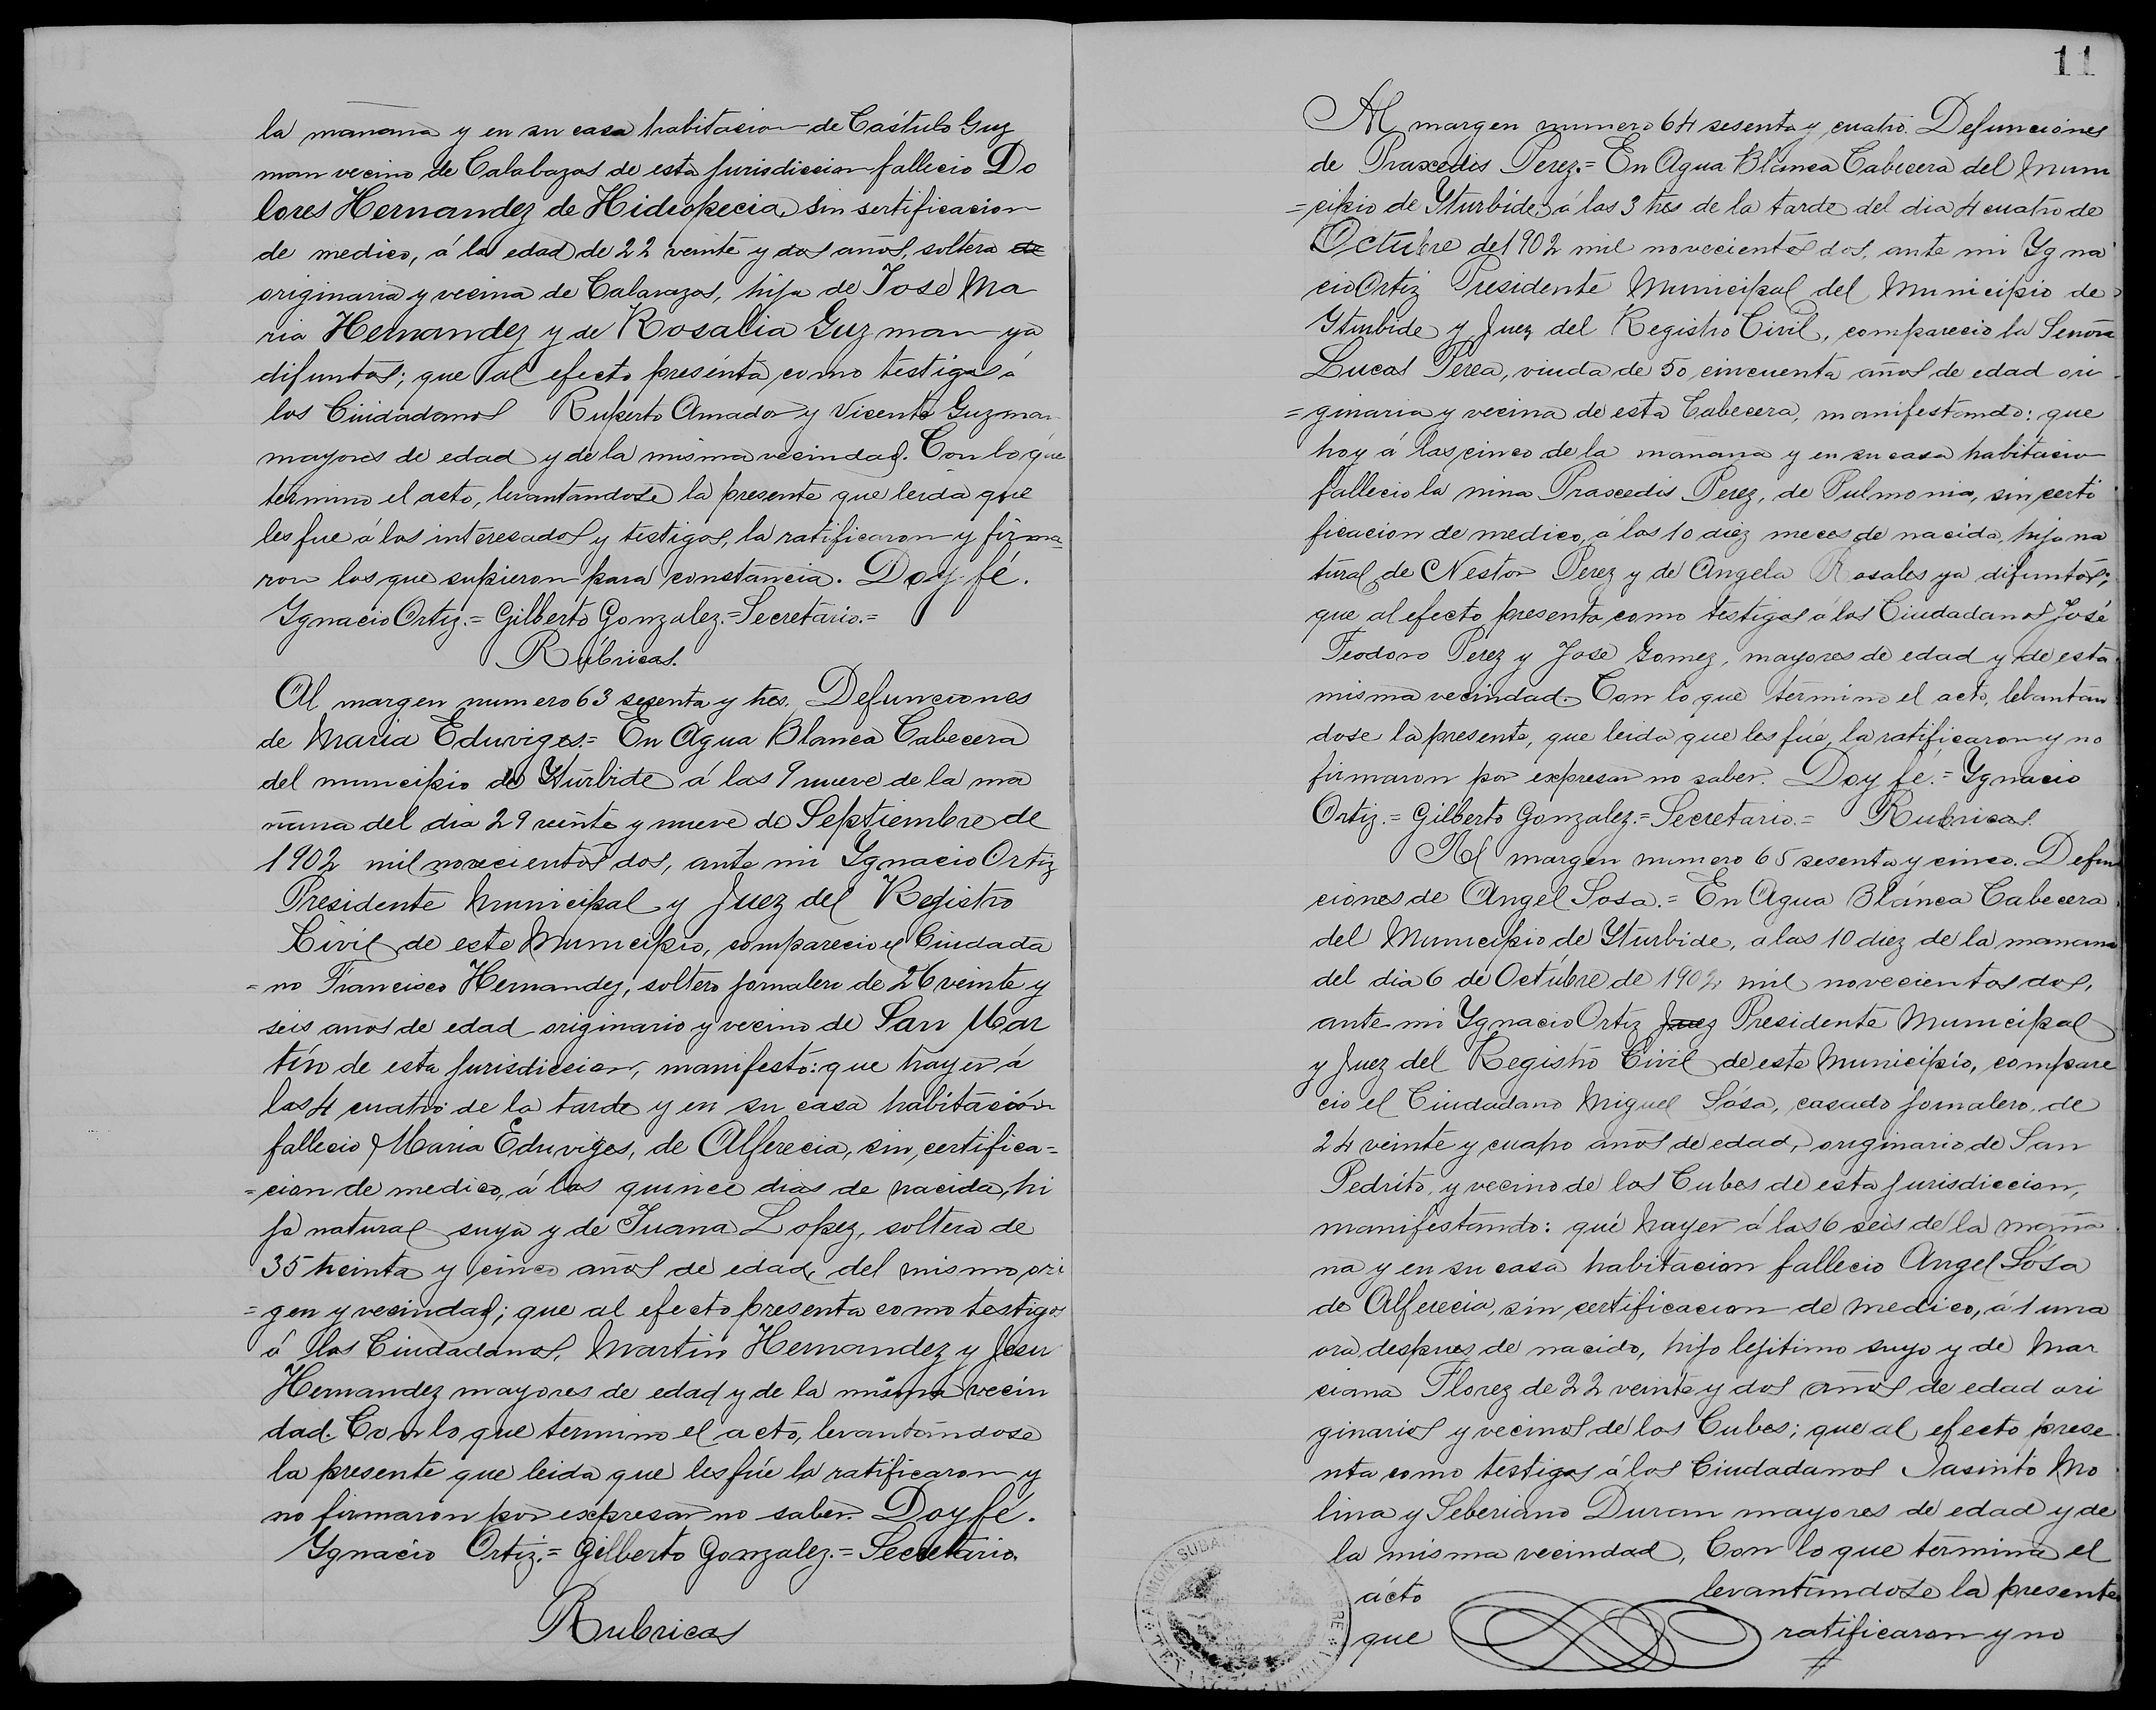 la manana y en su casa habitacion de Cástulo Guz
man vecino de Calabazas de esta Jurisdiccion fallecio Do
lores Hernandez de Hidropecia, sin sertificacion
de medico, á la edad de 22 veinte y dos años, soltera de
originaria y vecina de Calavazas, hija de Jose Ma
ria Hernandez y de Rosalia Guzman ya
difuntos; que al efecto presénta como testigos á
los Ciudadanos Ruperto Amador y Vicente Guzman
mayores de edad y de la misma vecindad. Con lo que
termino el acto, levantandose la presente que leida que
les fue á los interesados y testigos, la ratificaron y firma-
ron los que supieron para constancia. Doy fé.
Ygnacio Ortiz.= Gilberto Gonzalez.= Secretario.=
Rúbricas.
Al margen numero 63 sesenta y tres. Defunciones
de Maria Eduviges.= En Agua Blanca Cabecera
del municipio de Yturbide á las 9 nueve de la ma
ñana del dia 29 veinte y nueve de Septiembre de
1902 mil novecientos dos, ante mi Ygnacio Ortiz
Presidente Municipal y Juez del Registro
Civil de este Municipio, comparecio el Ciudada
=no Francisco Hernandez, soltero jornalero de 26 veinte y
seis anos de edad originario y vecino de San Mar
tín de esta Jurisdiccion, manifestó: que hayer á
las 4 cuatro de la tarde y en su casa habitación
fallecio Maria Eduviges, de Alferecia, sin certifica=
=cion de medico, á los quince dias de nacida, hi
ja natural suya y de Juana Lopez, soltera de
35 treinta y cinco años de edad, del mismo ori
=gen y vecindad; que al efecto presenta como testigos
á los Ciudadanos, Martin Hernandez y Jesu
Hernandez mayores de edad y de la misma vecin
dad. Con lo que termino el acto, levantandose
la presente que leida que les fúe la ratificaron y
no firmaron por expresar no saber. Doy fé.
Ygnacio Ortiz.= Gilberto Gonzalez.= Secretario.
Rubricas
11
Al margen numero 64 sesenta y cuatro. Defunciónes
de Praxedis Perez.= En Agua Blanca Cabecera del Muni
=cipio de Yturbide, á las 3 tres de la tarde del dia 4 cuatro de
Octubre de 1902 mil novecientos dos, ante mi Ygna
cio Ortiz Presidente Municipal del Municipio de
Yturbide y Juez del Registro Civil, comparecio la Senora
Lucas Perea, viuda de 50 cincuenta años de edad ori
=ginaria y vecina de esta Cabecera, manifestando: que
hoy á las cinco de la manana y en su casa habitacio
fallecio la nina Praxedis Perez, de Pulmonia, sin certi
ficacion de medico, á los 10 diez meces de nacida, hija na
tural de Nestor Perez y de Angela Rosales ya difuntos;
que al efecto presenta como testigos á los Ciudadanos José
Teodoro Perez y Jose Gomez, mayores de edad y de esta
misma vecindad. Con lo que termino el acto, lebantan
dose la presente, que leida que les fué, la ratificaron y no
firmaron por expresar no saber. Doy fé.= Ygnacio
Ortiz.= Gilberto Gonzalez.= Secretario.= Rubricas.
Al margen numero 65 sesenta y cinco. Defun
ciones de Angel Sosa.= En Agua Blanca Cabecera
del Municipio de Yturbide, a las 10 diez de la manana
del dia 6 de Octubre de 1902 mil novecientos dos,
ante mi Ygnacio Ortiz Juez Presidente Municipal
y Juez del Registro Civil de este Municipio, compare
cio el Ciudadano Miguel Sósa, casado jornalero, de
24 veinte y cuatro años de edad, originario de San
Pedrito, y vecino de los Cubes de esta Jurisdiccion,
manifestando: qué hayer á las 6 seis de la maña
na y en su casa habitacion fallecio Angel Sósa
de Alferecia, sin certificacion de medico, á 1 una
ora despues de nacido, hijo lejitimo suyo y de Mar
ciana Florez de 22 veinte y dos años de edad ori
ginarios y vecinos de los Cubes; que al efecto prese
nta como testigos á los Ciudadanos Jasinto Mo
lina y Seberiano Duran mayores de edad y de
la misma vecindad, Con lo que termina el
ácto levantandose la presente
que ratificaron y no